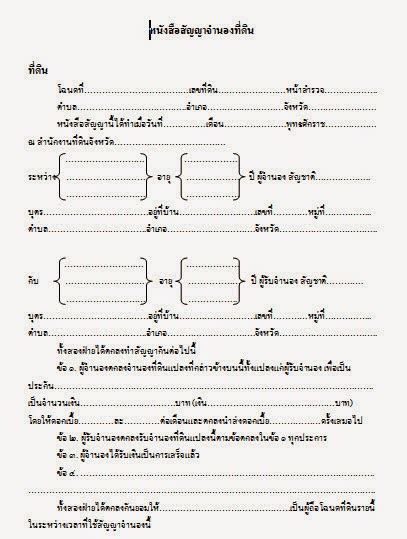 หนังสือสัญญาจำนองที่ดิน
ที่ดิน
โฉนดที่.....................................เลขที่ดิน........................หน้าสำรวจ...................
ตำบล.......................................อำเภอ...........................จังหวัด........................
หนังสือสัญญานี้ได้ทำเมื่อวันที่...............เดือน......................พุทธศักราช..................
ณ สำนักงานที่ดินจังหวัด........................................
ระหว่าง { ............................ } อายุ { ................... } ปี ผู้จำนอง สัญชาติ...................
บุตร.....................................อยู่ที่บ้าน..........................เลขที่............หมู่ที่................
ตำบล...................................อำเภอ...............................จังหวัด.................................
กับ { ............................ } อายุ { ................... } ปี ผู้รับจำนอง สัญชาติ.............
บุตร.....................................อยู่ที่บ้าน..........................เลขที่............หมู่ที่................
ตำบล...................................อำเภอ...............................จังหวัด.................................
ทั้งสองฝ่ายได้ตกลงทำสัญญากันต่อไปนี้
ข้อ ๑. ผู้จำนองตกลงจำนองที่ดินแปลงที่กล่าวข้างบนนี้ทั้งแปลงแก่ผู้รับจำนอง เพื่อเป็น
ประกัน....................................................................................................................
เป็นจำนวนเงิน..................................บาท (เงิน..............................................บาท)
โดยให้ดอกเบี้ย............ละ.............ต่อเดือนและตกลงนำส่งดอกเบี้ย..................ครั้งเสมอไป
ข้อ ๒. ผู้รับจำนองตกลงรับจำนองที่ดินแปลงนี้ตามข้อตกลงในข้อ ๑ ทุกประการ
ข้อ ๓. ผู้จำนองได้รับเงินเป็นการเสร็จแล้ว
ข้อ ๔..........................................................................................................
..............................................................................................................................
ทั้งสองฝ่ายได้ตกลงกันยอมให้................................................เป็นผู้ถือโฉนดที่ดินรายนี้
ในระหว่างเวลาที่ใช้สัญญาจำนองนี้